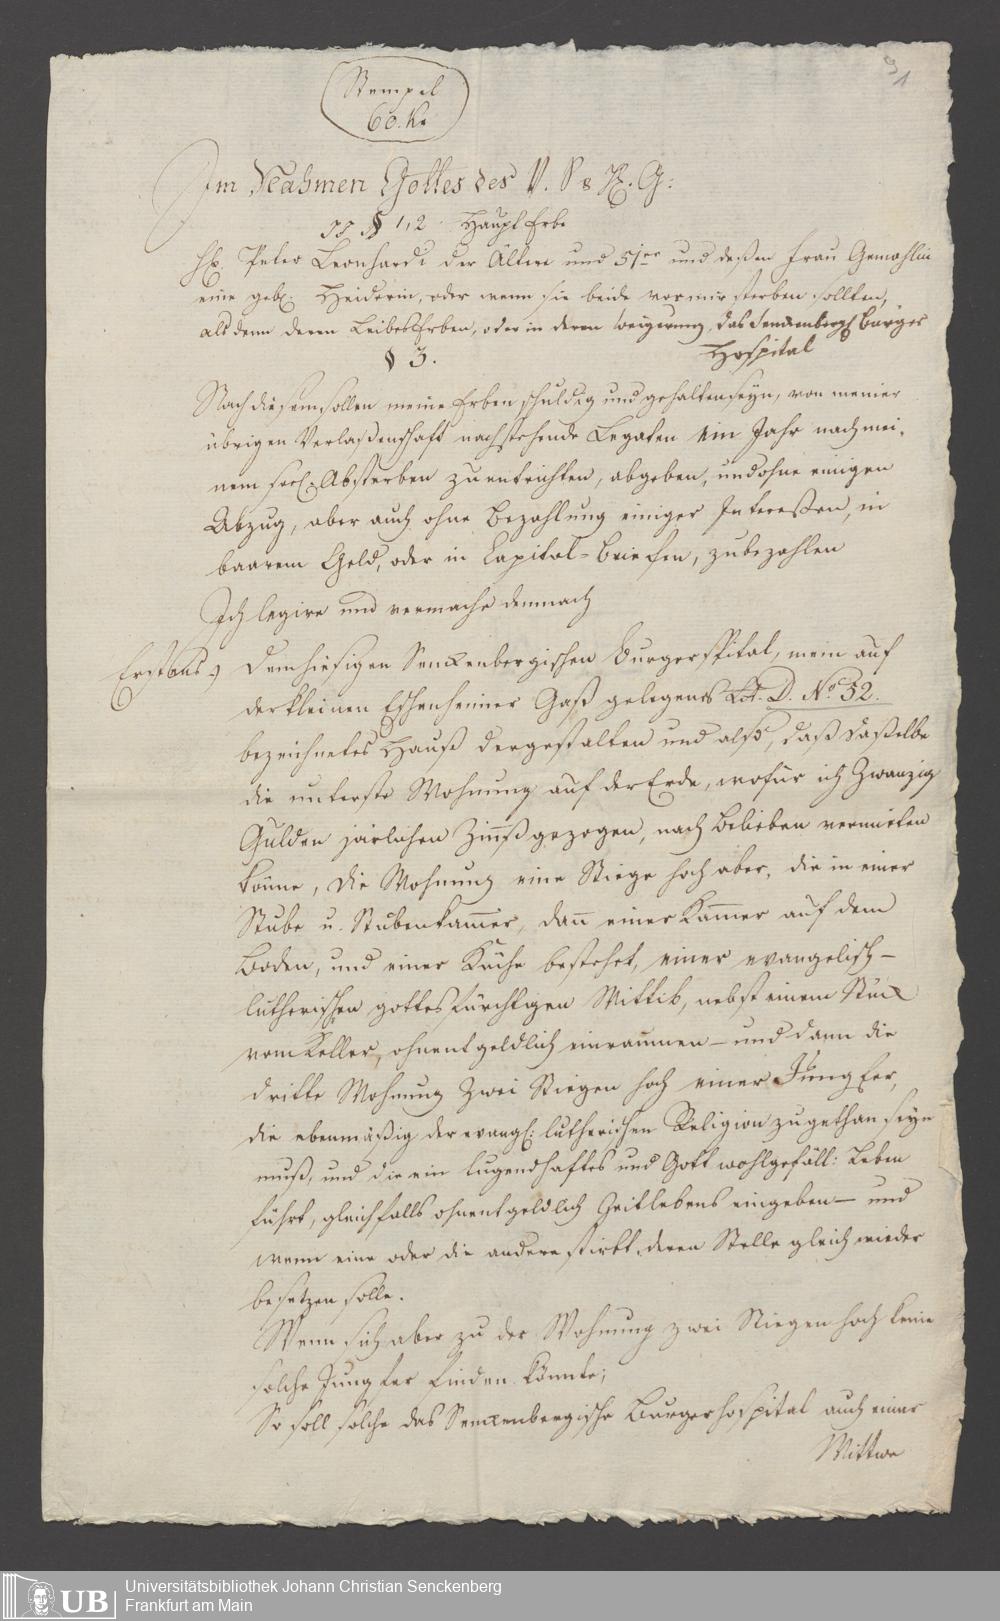 Stempel
60. Kr
91
Im Nahmen Gottes des V. S & H. G:
§ 1, 2 Haupt Erbe
H. Peter Leonhardi der Ältere und 51er und deßen Frau Gemahlin
eine geb. Heiderin, oder wenn sie beide vor mir sterben sollten,
alsdenn deren Leibes Erben, oder in deren Weigerung, das Senckenberg Burger
Hospital
§ 3.
Nach diesem sollen meine Erben schuldig und gehalten seyn, von meiner
übrigen Verlaßenschaft nachstehende Legaten ein Jahr nach mei-
nem seel: Absterben zu entrichten, abgeben, und ohne einigen
Abzug, aber auch ohne Bezahlung einiger Intereßen, in
baarem Geld, oder in Capital-Briefen, zubezahlen
Ich legire und vermache demnach
Erstens, Dem hiesigen Senckenbergischen Burgerspital, mein auf
der kleinen Eschenheimer Gaß gelegenes Lit. D. No. 52.
bezeichnetes Hauß dergestalten und also, daß daßelbe
die unterste Wohnung auf der Erde, wofür ich Zwanzig
Gulden järlichen Zinnß gezogen, nach Belieben vermieten
könne, die Wohnung eine Stiege hoch aber, die in einer
Stube u. Stubenkam̄er, dan̄ einer Kam̄er auf dem
Boden, und einer Küche bestehet, einer evangelisch-
lutherischen gottesfürchtigen Wittib, nebst einem Stück
vom Keller, ohnentgeldlich einraumen - und dann die
dritte Wohnung Zwei Stiegen hoch einer Jungfer,
die ebenmäßig der evangl: lutherischen Religion zugethan seyn
muß, und die ein tugendhaftes und Gott wohlgefäll: Leben
führt, gleichfalls ohnentgeldlich Zeitlebens eingeben - und
wenn eine oder die andere stirbt, deren Stelle gleich wieder
besetzen solle.
Wenn sich aber zu der Wohnung zwei Stiegen hoch keine
solche Jungfer finden könnte;
So soll solche das Senckenbergische Burgerhospital auch einer
Wittwe
UB
Universitätsbibliothek Johann Christian Senckenberg
Frankfurt am Main